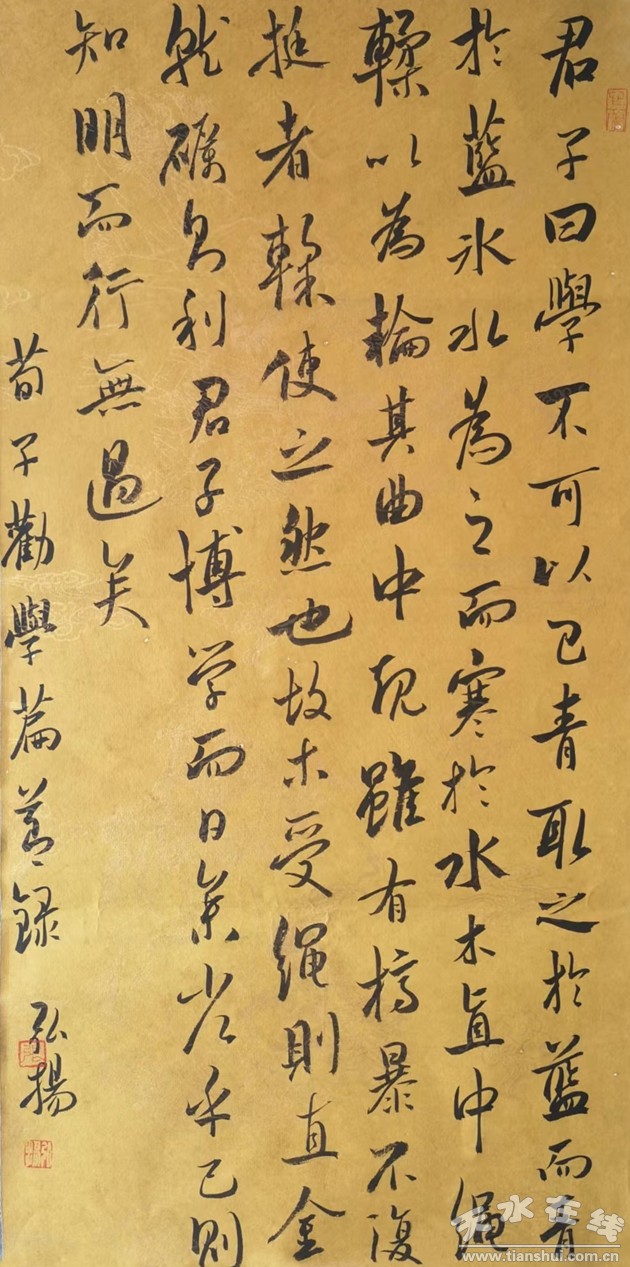 君子曰學不可以已青取之於藍而青
於藍冰水為之而寒於水木直中繩
輮以為輪其曲中規雖有槁暴不復
挺者輮使之然也故木受绳則直金
就礪则利君子博学而日參省乎己则
知明而行無過矣
荀子勸學篇節録 弘揚
天水在线
www.tianshui.com.cn